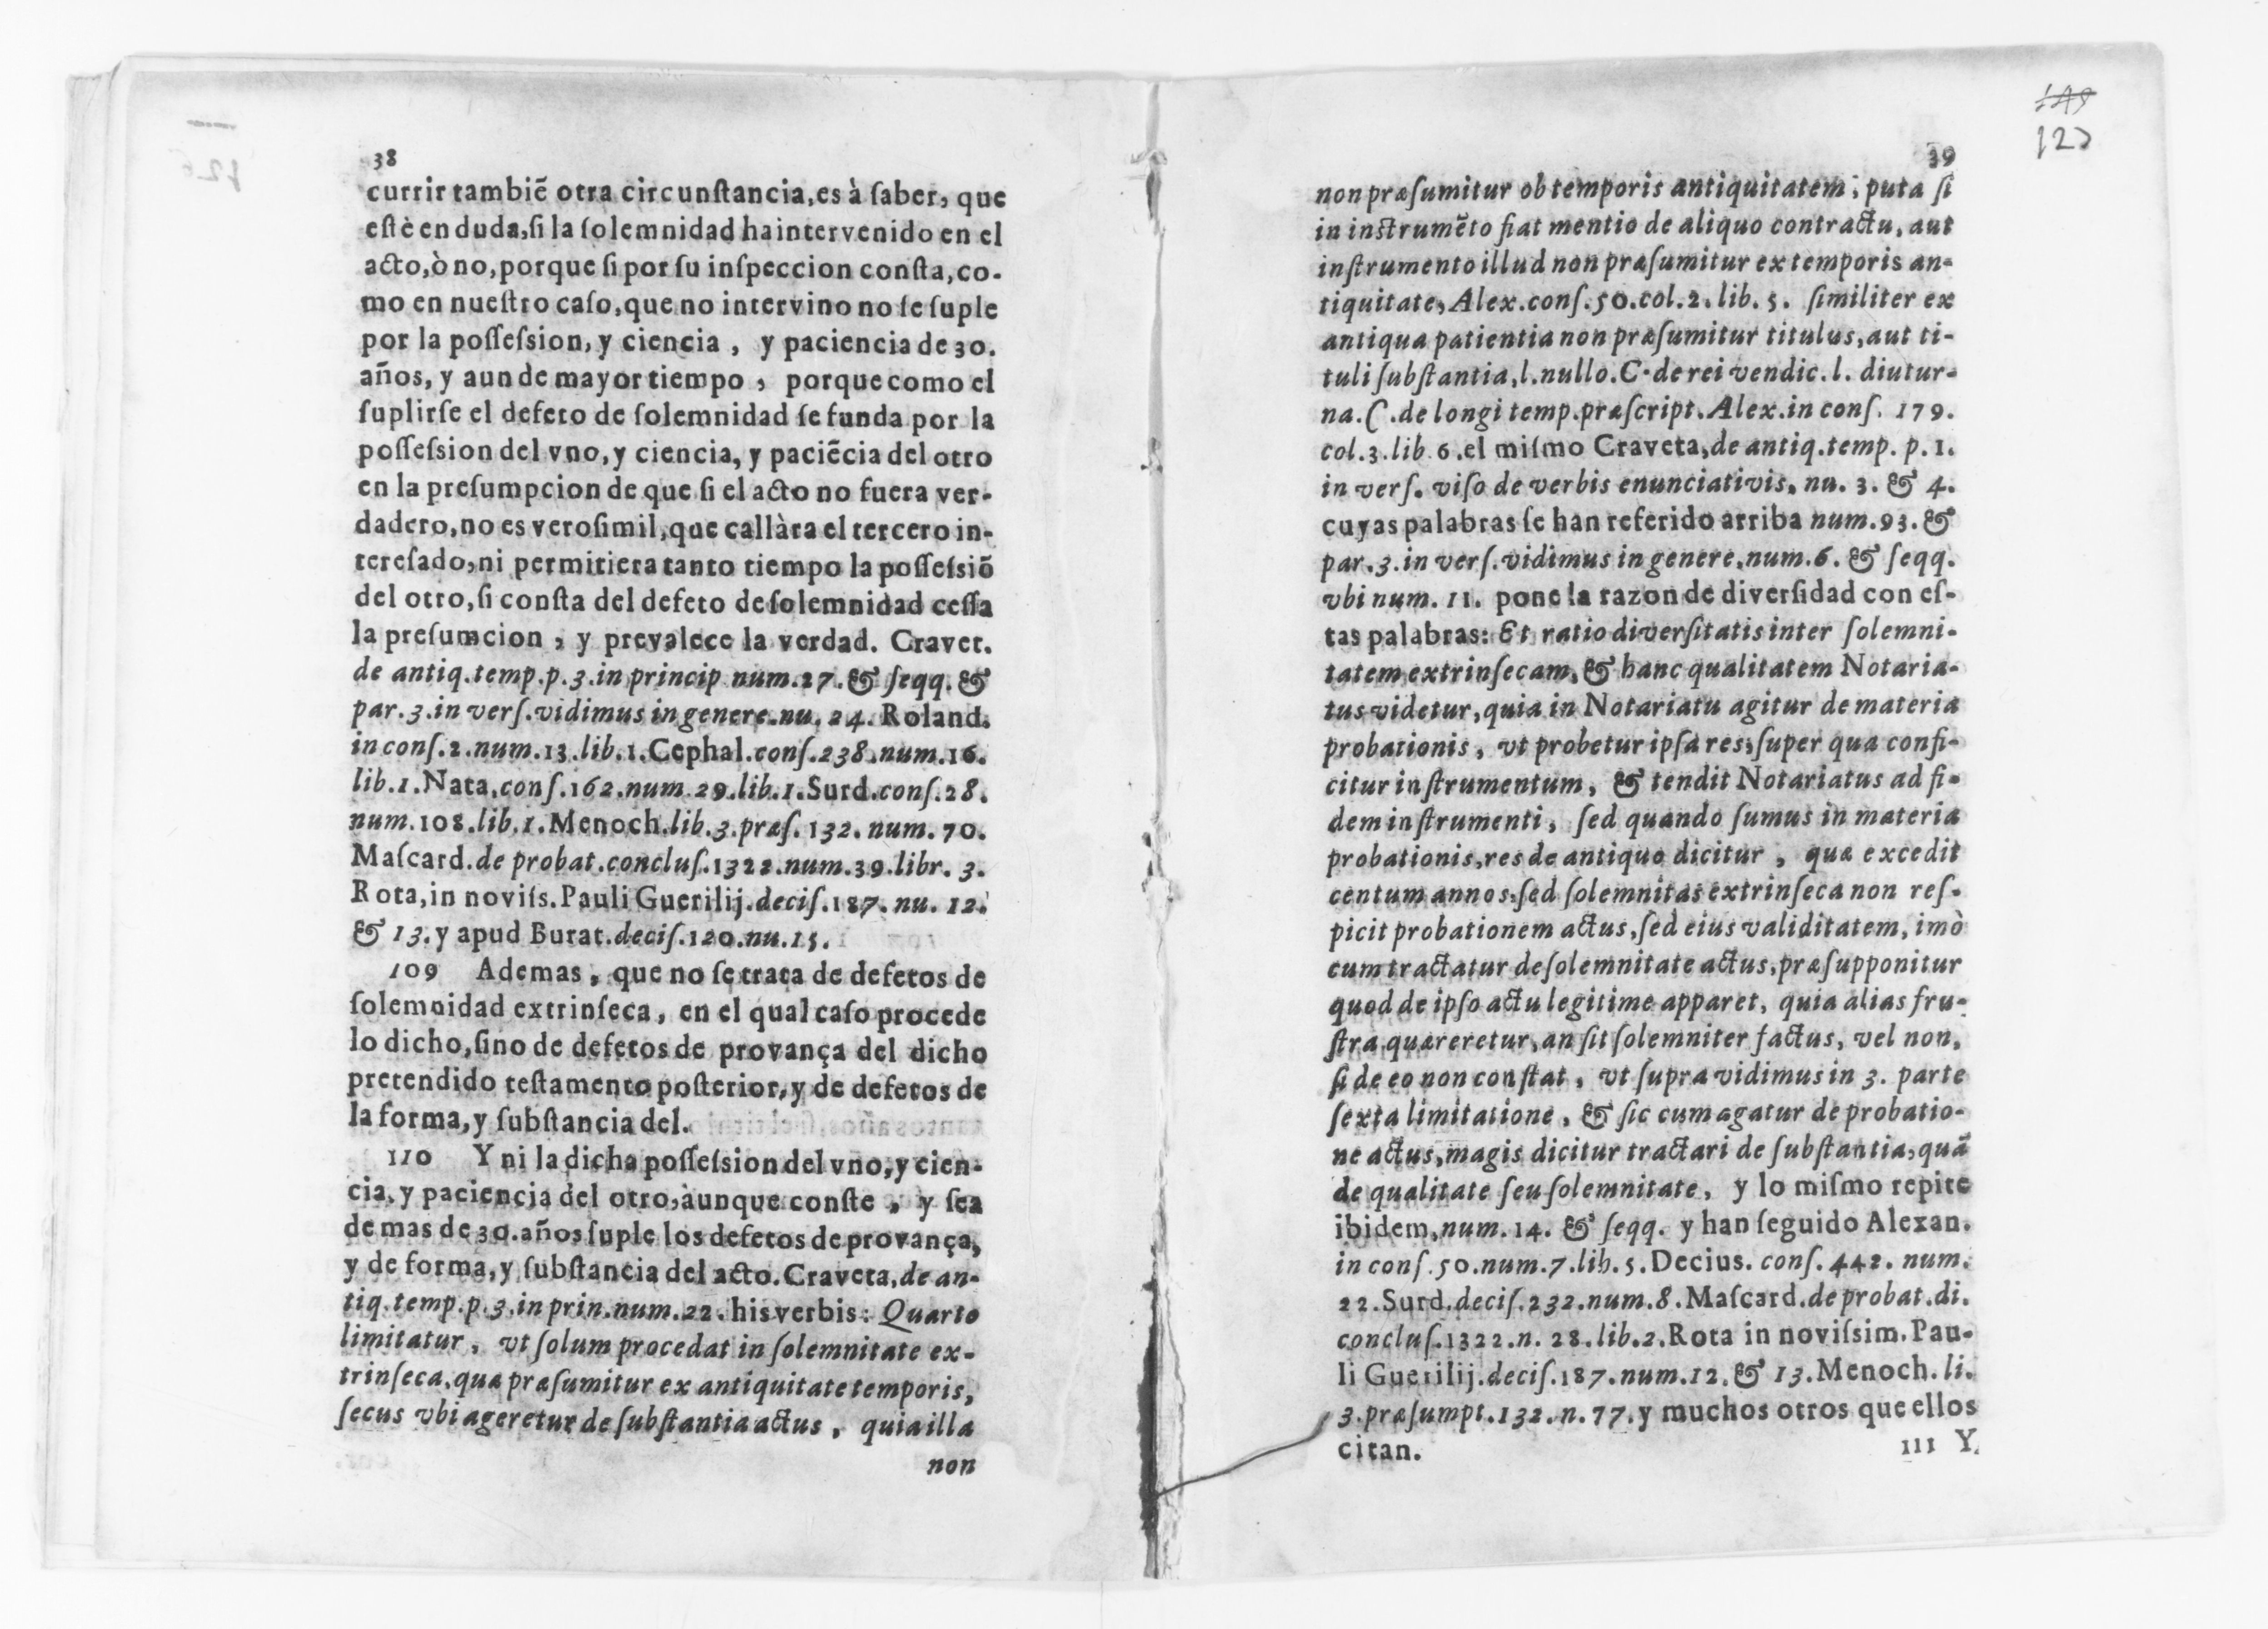 38
currir tambiẽ otra circunſtancia, es à ſaber, que
eſtè en duda, ſi la ſolemnidad ha intervenido en el
acto, ò no, porque ſi por ſu inſpeccion conſta, co-
mo en nueſtro caſo, que no intervino no ſe ſuple
por la poſſeſsion, y ciencia, y paciencia de 30.
años, y aun de mayor tiempo, porque como el
ſuplirſe el defeto de ſolemnidad ſe funda por la
poſſeſsion del vno, y ciencia, y paciẽcia del otro
en la preſumpcion de que ſi el acto no fuera ver-
dadero, no es veroſimil, que callàra el tercero in-
tereſado, ni permitiera tanto tiempo la poſſeſsiõ
del otro, ſi conſta del defeto de ſolemnidad ceſſa
la preſumcion, y prevalece la verdad. Cravet.
de antiq. temp. p. 3. in princip num. 27. & ſeqq. &
par. 3. in verſ. vidimus in genere. nu. 24. Roland.
in conſ. 2. num. 13. lib. 1. Cephal. conſ. 238. num. 16.
lib. 1. Nata, conſ. 162. num. 29. lib. 1. Surd. conſ. 28.
num. 108. lib. 1. Menoch. lib. 3. præſ. 132. num. 70.
Maſcard. de probat. concluſ. 1322. num. 39. libr. 3.
Rota, in noviſs. Pauli Guerilij. deciſ. 187. nu. 12.
& 13. y apud Burat. deciſ. 120. nu. 15.
109 Ademas, que no ſe trata de defetos de
ſolemnidad extrinſeca, en el qual caſo procede
lo dicho, ſino de defetos de provança del dicho
pretendido teſtamento poſterior, y de defetos de
la forma, y ſubſtancia del.
110 Y ni la dicha poſſeſsion del vno, y cien-
cia, y paciencia del otro, àunque conſte, y ſea
de mas de 30. años ſuple los defetos de provança,
y de forma, y ſubſtancia del acto. Craveta, de an-
tiq. temp. p. 3. in prin. num. 22. his verbis: Quarto
limitatur, vt ſolum procedat in ſolemnitate ex-
trinſeca, quæ præſumitur ex antiquitate temporis,
ſecus vbi ageretur de ſubſtantia actus, quia illa
non
39
non præſumitur ob temporis antiquitatem; puta ſi
in inſtrumẽto fiat mentio de aliquo contractu, aut
inſtrumento illud non præſumitur ex temporis an-
tiquitate, Alex. conſ. 50. col. 2. lib. 5. ſimiliter ex
antiqua patientia non præſumitur titulus, aut ti-
tuli ſubſtantia, l. nullo. C. de rei vendic. l. diutur-
na. C. de longi temp. præſcript. Alex. in conſ. 179.
col. 3. lib. 6. el miſmo Craveta, de antiq. temp. p. 1.
in verſ. viſo de verbis enunciativis, nu. 3. & 4.
cuyas palabras ſe han referido arriba num. 93. &
par. 3. in verſ. vidimus in genere, num. 6. & ſeqq.
vbi num. 11. pone la razon de diverſidad con eſ-
tas palabras: Et ratio diverſitatis inter ſolemni-
tatem extrinſecam, & hanc qualitatem Notaria-
tus videtur, quia in Notariatu agitur de materia
probationis, vt probetur ipſa res, ſuper qua confi-
citur inſtrumentum, & tendit Notariatus ad fi-
dem inſtrumenti, ſed quando ſumus in materia
probationis, res de antiquo dicitur, quæ excedit
centum annos, ſed ſolemnitas extrinſeca non reſ-
picit probationem actus, ſed eius validitatem, imò
cum tractatur de ſolemnitate actus, præſupponitur
quod de ipſo actu legitime apparet, quia alias fru-
ſtra quæreretur, an ſit ſolemniter factus, vel non,
ſi de eo non conſtat, vt ſupra vidimus in 3. parte
ſexta limitatione, & ſic cum agatur de probatio-
ne actus, magis dicitur tractari de ſubſtantia, quã
de qualitate ſeu ſolemnitate, y lo miſmo repite
ibidem, num. 14. & ſeqq. y han ſeguido Alexan.
in conſ. 50. num. 7. lib. 5. Decius. conſ. 442. num.
22. Surd. deciſ. 232. num. 8. Maſcard. de probat. di.
concluſ. 1322. n. 28. lib. 2. Rota in noviſsim. Pau-
li Guerilij. deciſ. 187. num. 12. & 13. Menoch. li.
3. præſumpt. 132. n. 77. y muchos otros que ellos
citan.
111 Y